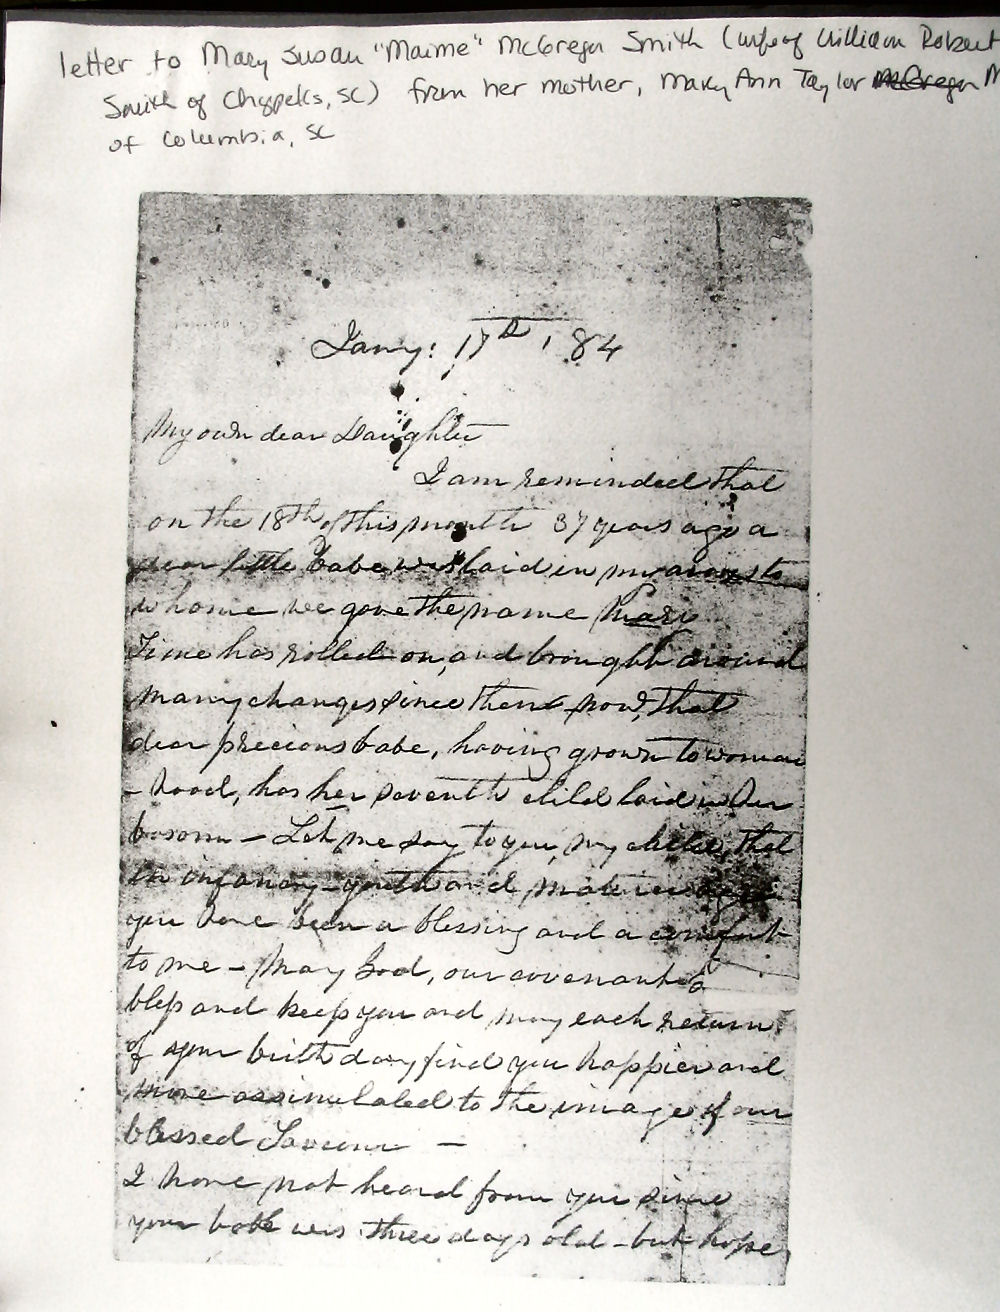 letter to Mary Susan "Maime" McGregor Smith (wife of William Robert
Smith of Chappells, SC) from her mother, Mary Ann Taylor McGregor M
of Columbia, SC
Jany: 17th, 84
My own dear Daughter
I am reminded that
on the 18th of this month 37 years ago a
dear little babe was laid in my arms to
whome we gave the name Mary
Time has rolled on, and brought around
many changes since then & now, that
dear precious babe, having grown to woman
-hood, has her seventh child laid in her
bosom – Let me say to you, my child, that
in infancy – youth and mature
you have been a blessing and a comfort
to me – May God, our covenant
bless and keep you and may each return
of your birth day find you happier and
more assimilated to the image of our
blessed Saviour –
I have not heard from you since
your babe was three days old – but hope